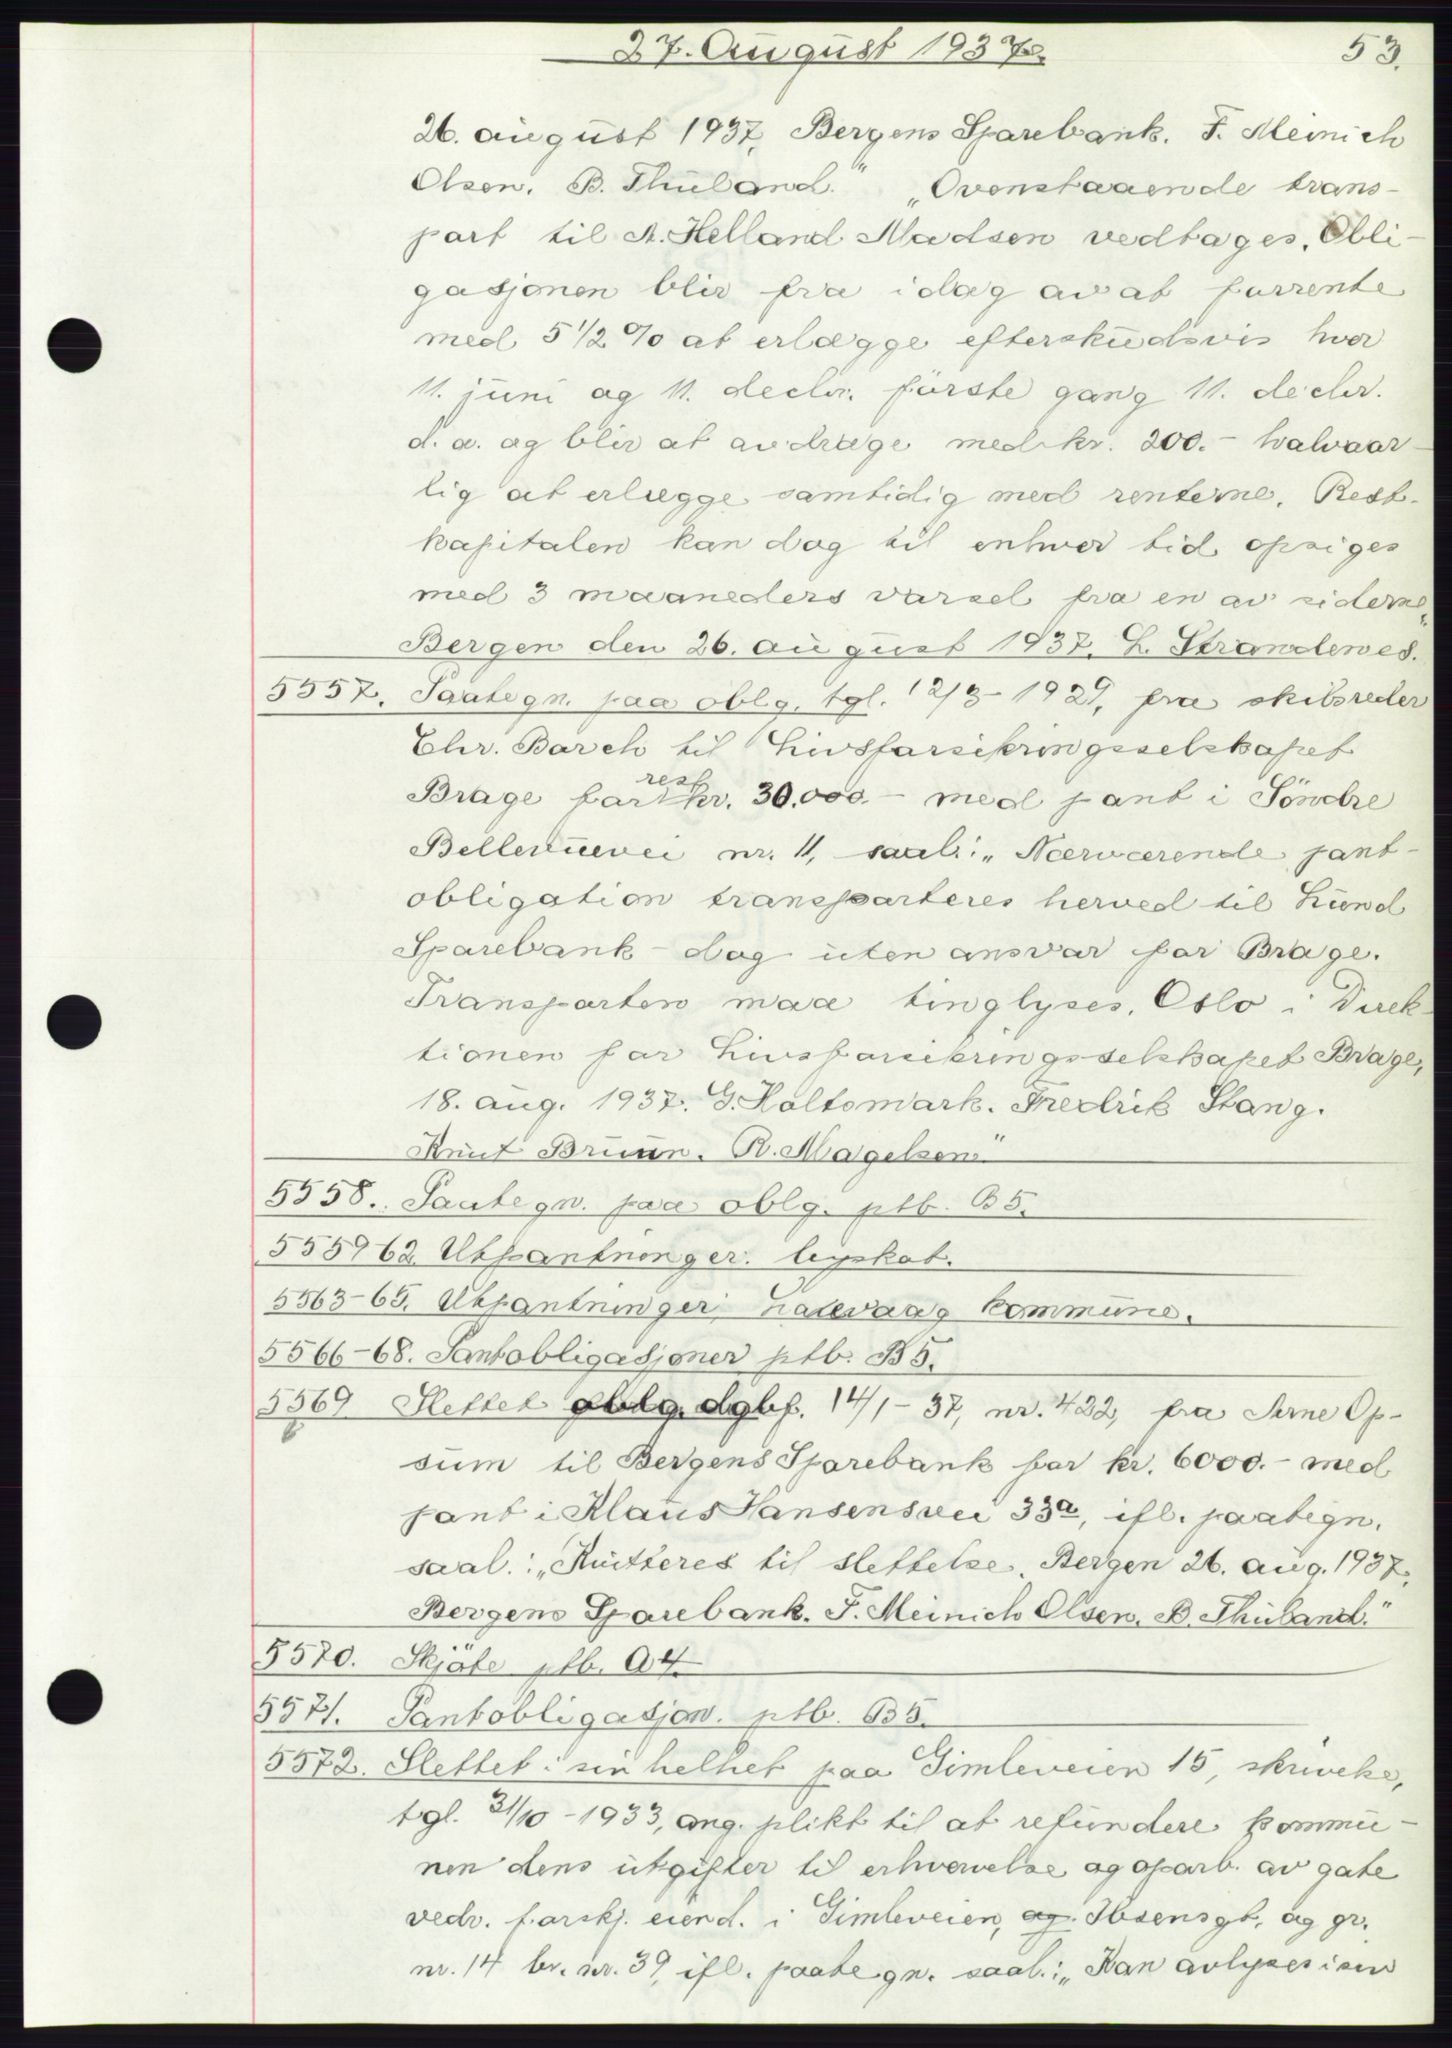 27. August 1937.
53.
26. august 1937. Bergens Sparebank. F. Meinich
Olsen. B. Thuland." "Ovenstaaende trans-
port til A. Helland Madsen vedtages. Obli-
gasjonen blir fra idag av at forrente
med 5 1/2 % at erlægge efterskudsvis hver
11. juni og 11. decbr. første gang 11. decbr.
d. a. og blir at avdrage med kr. 200.- halvaar-
lig at erlægge samtidig med renterne. Rest-
kapitalen kan dog til enhver tid opsiges
med 3 maaneders varsel fra en av siderne.
Bergen den 26. august 1937. L. Strandenes."
5557. Paategn. paa oblg. tgl. 12/3-1929, fra skibsreder
Chr. Borch til Livsforsikringsselskapet
Brage for rest kr. 30.000.- med pant i Söndre
Bellevuevei nr. 11, saal.: "Nærværende pant-
obligation transporteres herved til Lund
Sparebank - dog uten ansvar for Brage.
Transporten maa tinglyses. Oslo i Direk-
tionen for Livsforsikringsselskapet Brage,
18. aug. 1937. G. Holtsmark. Fredrik Stang.
Knut Bruun. R. Magelsen."
5558. Paategn. paa oblg. ptb. B5.
5559-62. Utpantninger. byskat.
5563-65. Utpantninger Laksevaag kommune.
5566-68. Pantobligasjoner ptb. B5.
5569 Slettet oblg. dgbf. 14/1-37, nr. 422, fra Arne Op-
sum til Bergens Sparebank for kr. 6000.- med
pant i Klaus Hansensvei 33a, ifl. paategn.
saal.: "Kvitteres til slettelse. Bergen 26. aug. 1937.
Bergens Sparebank. F. Meinich Olsen. B. Thuland."
5570. Skjöte ptb. A4.
5571. Pantobligasjon. ptb. B5.
5572. Slettet i sin helhet paa Gimleveien 15, skrivelse,
tgl. 31/10-1933, ang. plikt til at refundere kommu-
nen dens utgifter til erhvervelse og oparb. av gate
vedr. forskj. eiend. i Gimleveien, og Ibsensgt, og gr.
nr. 14 br. nr. 39, ifl. paategn. saal.: "Kan avlyses i sin